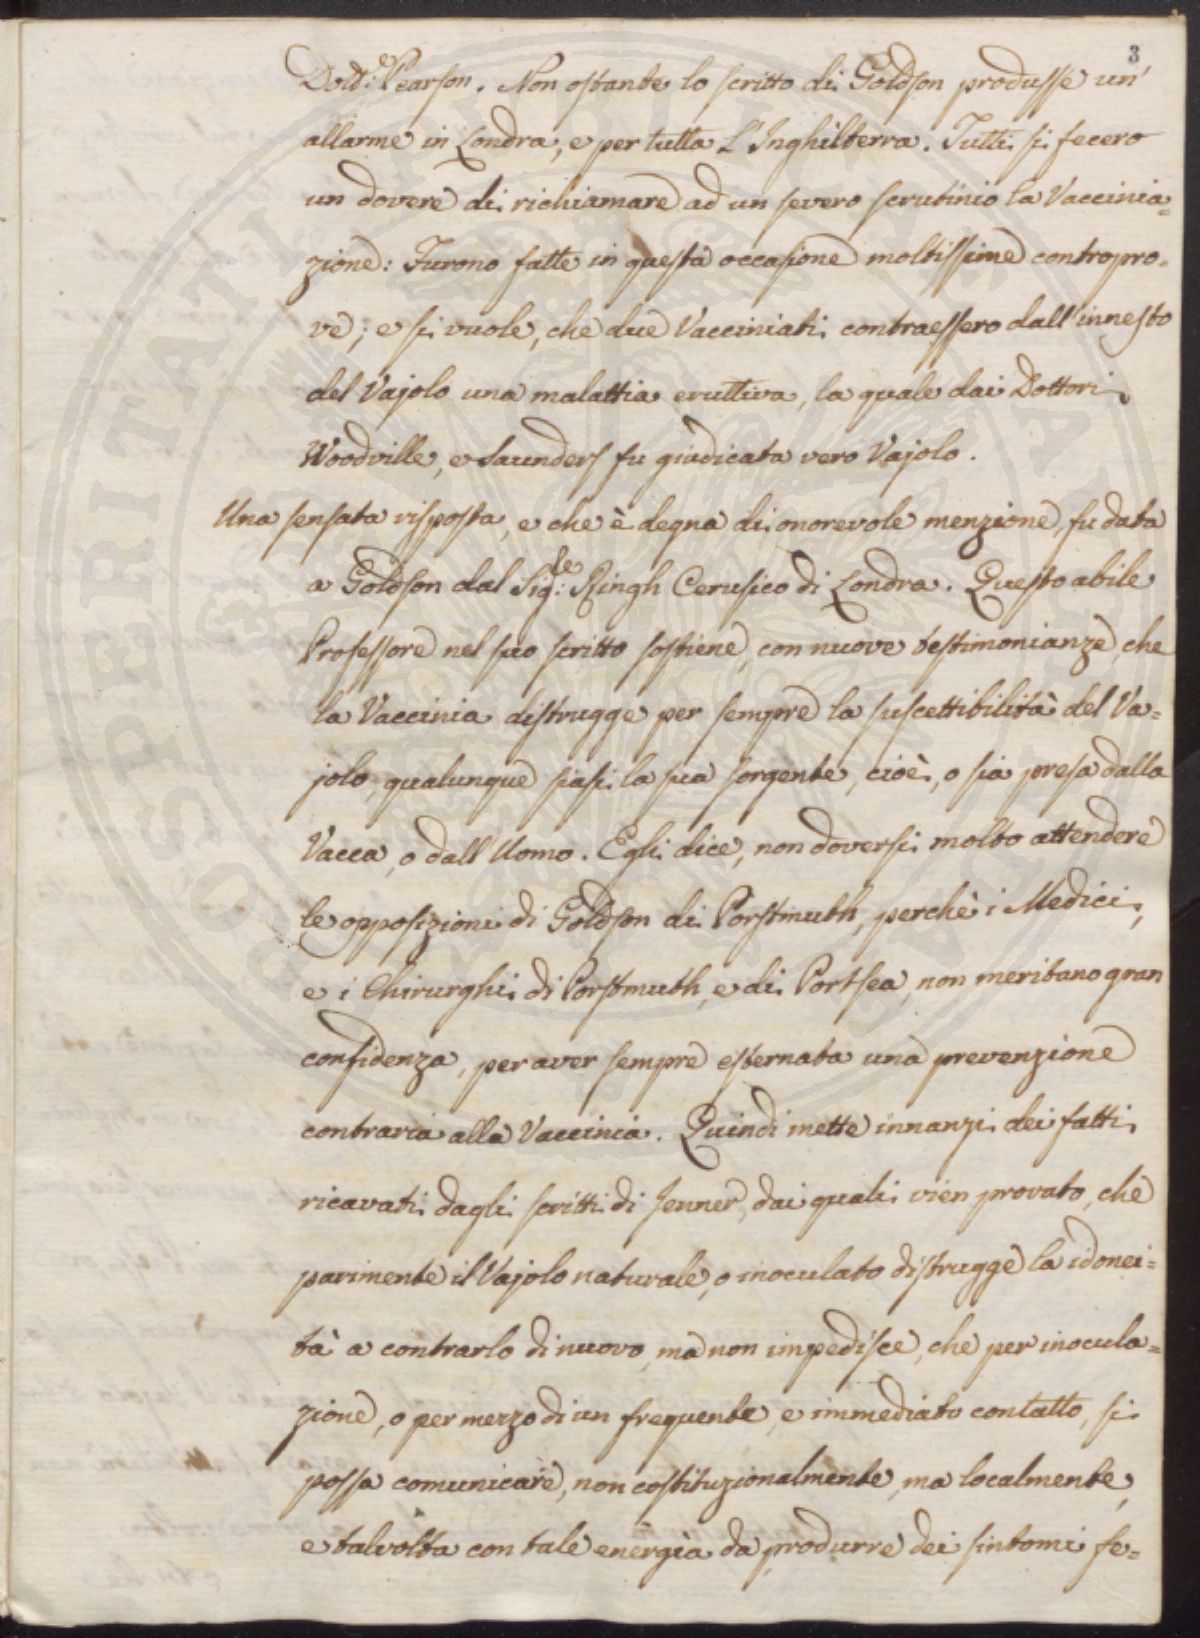 3
Dott.e Pearson. Non ostante lo scritto di Goldson produsse un'
allarme in Londra, e per tutta l'Inghilterra. Tutti si fecero
un dovere di richiamare ad un severo scrutinio la Vaccinia=
zione: Furono fatte in questa occasione moltissime contropro=
ve; e si vuole, che due Vacciniati contraessero dall'innesto
del Vajolo una malattia eruttiva, la quale dai Dottori
Woodville, e Saunders fu giudicata vero Vajolo.
Una sensata risposta, e che è degna di onorevole menzione, fu data
a Goldson dal Sig.re Ringh Cerusico di Londra. Questo abile
Professore nel suo scritto sostiene, con nuove testimonianze, che
la Vaccinia distrugge per sempre la suscettibilità del Va=
jolo, qualunque siasi la sua sorgente, cioè, o sia presa dalla
Vacca, o dall'Uomo. Egli dice, non doversi molto attendere
le opposizioni di Goldson di Porstmuth, perchè i Medici,
e i Chirurghi di Porstmuth, e di Portsea, non meritano gran
confidenza, per aver sempre esternata una prevenzione
contraria alla Vaccinia. Quindi mette innanzi dei fatti
ricavati dagli scritti di Jenner, dai quali vien provato, che
parimente il Vajolo naturale, o inoculato distrugge la idonei=
tà a contrarlo di nuovo, ma non impedisce, che per inocula=
zione, o per mezzo di un frequente, e immediato contatto, si
possa comunicare, non costituzionalmente, ma localmente,
e talvolta con tale energia da produrre dei sintomi fe=
PROSPERITATI PUBLICAE AUGENDAE